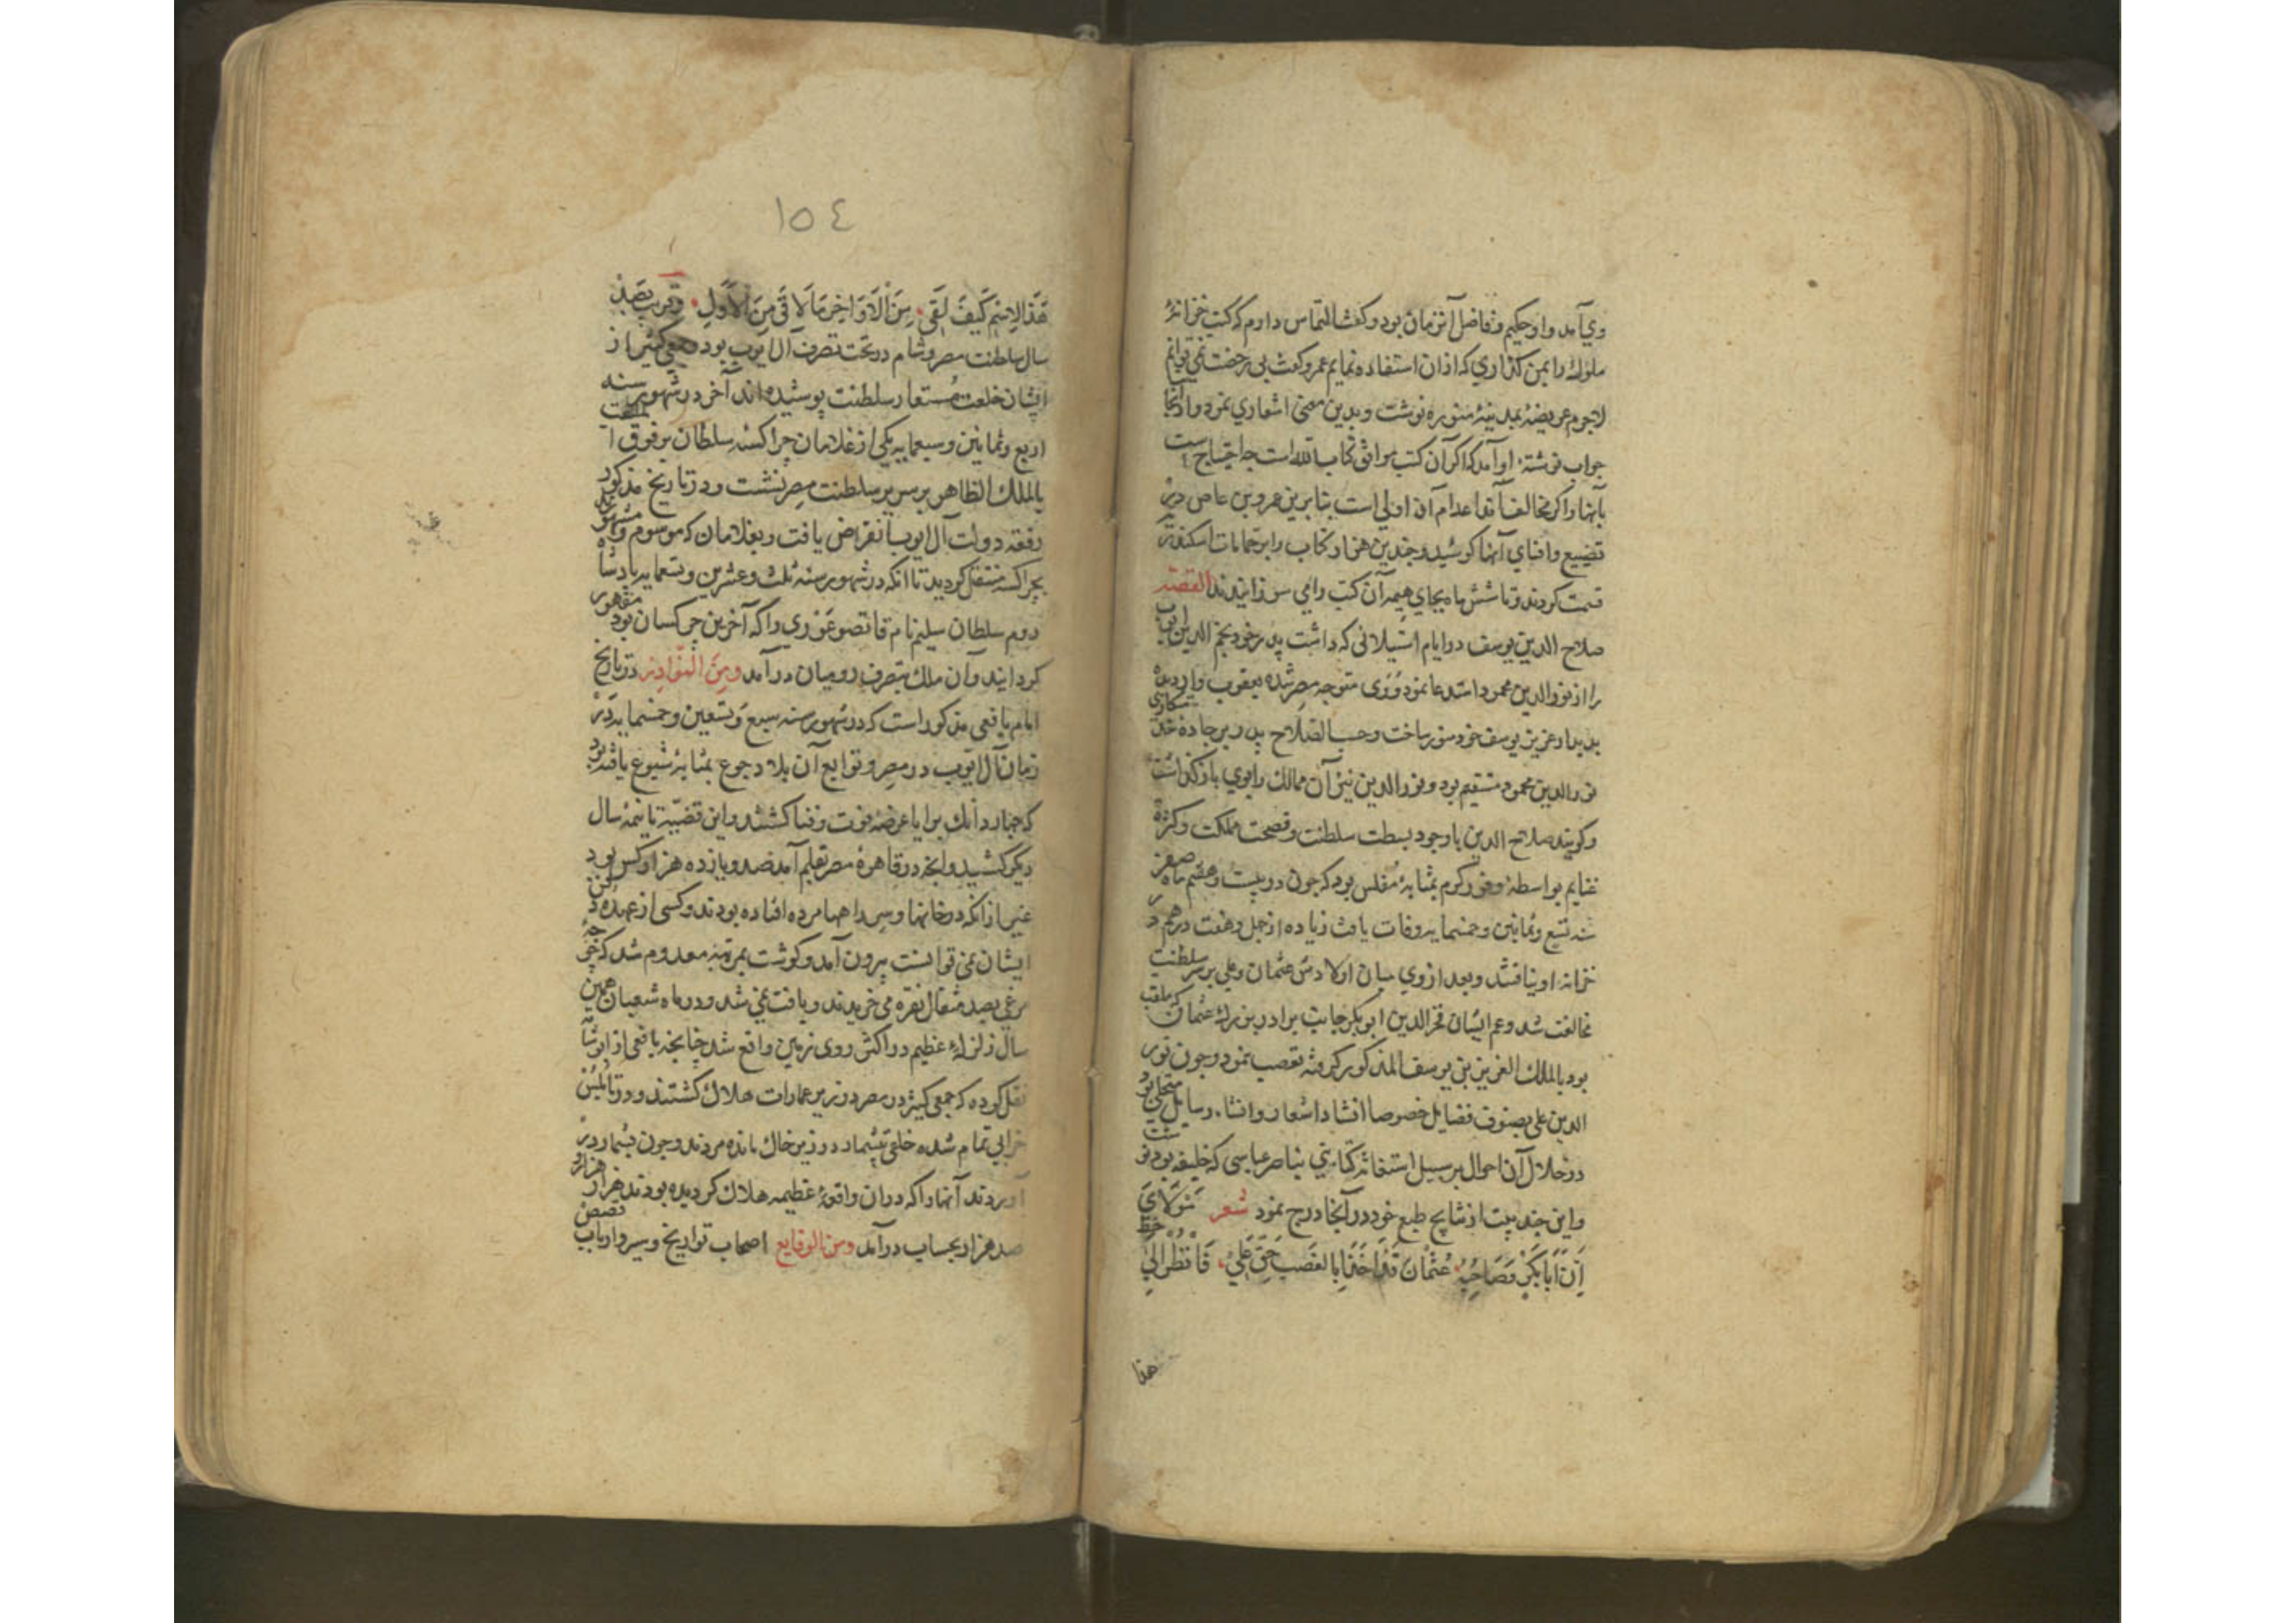 وي آمد و او حكيم و فاضل آن زمان بود و كفت التماس دارم كه كتب خزانهٔ
ملوك را بمن كذاري كه از ان استفاده نمايم عمرو كفت بي رخصت نمي توانم
لاجرم عريضهٔ بمدينهٔ منوره نوشت و بدين معنى اشعاري نمود و از انجا
جواب نوشتهٔ او آمد كه اكر آن كتب موافق كتاب الله است چه احتياج است
بآنها و اكر مخالف آند اعدام آن اولى است بنابرين عمرو بن عاص در
تضييع و افناي آنها كوشيد و چندين هزار كتاب را بر حمامات اسكندريه
قسمت كردند و تا شش ماه بجاي هيمه آن كتب را مي سوزانيدند القصّه
صلاح الدين يوسف در ايام استيلائى كه داشت پدر خود نجم الدين ايوب
را از نور الدين محمود استدعا نمود و وى متوجه مصر شده يعقوب وار ديده
بديدار عزيز يوسف خود منور ساخت و حسب الصلاح پدر بر جادهٔ خدمتكاري
نور الدين محمود مستقيم بود و نور الدين نيز آن ممالك را بوي باز كذاشت
و كويند صلاح الدين با وجود بسطت سلطنت و فسحت مملكت و كثرة
غنايم بواسطهٔ وفور كرم بمثابهٔ مفلس بود كه چون در بيست و هفتم ماه صفر
سنه تسع و ثمانين و خمسمايه وفات يافت زياده از چهل و هفت درهم در
خزانهٔ او نيافتند و بعد از وي ميان اولادش عثمان و علي بر سر سلطنت
مخالفت شد و عم ايشان فخر الدين ابو بكر جانب برادر بزرك عثمان كه ملقب
بود بالملك العزيز بن يوسف المذكور كرفته تعصب نمود و چون نور
الدين على بصنوف فضايل خصوصا انشاد اشعار و انشاء رسايل متحلي بود
در خلال آن احوال بر سبيل استغاثه كتابتي بناصر عباسى كه خليفه بود نوشت
و اين چند بيت از نتايج طبع خود در آنجا درج نمود شعر مَوْلَايَ
اِنَّ اَبَا بَكْرٍ وَصَاحِبُهُ عُثْمَانَ قَدْ اَخَذَا بِالغَصْبِ حَقَّ عَلِيْ فَانْظُر اِلَى حَظّ
هذا
١٥٤
هَذَا الاِسْمِ كَيْفَ لَقِى مِنَ الْاَوَاخِرِ مَا لَاقَى مِنَ الْاَوَّلِ و قريب بصد
سال سلطنت مصر و شام در تحت تصرف آل ايوب بود جمعي كثير از
ايشان خلعت مستعار سلطنت پوشيده اند آخر در شهور سنه
اربع و ثمانين و سبعمايه يكي از غلامان چراكسه سلطان برقوق الملقب
بالملك الظاهر بر سرير سلطنت مصر نشست و در تاريخ مذكور
رفعه دولت آل ايوب انقراض يافت و بغلامان كه موسوم و مشهور
بچراكسه منتقل كرديد تا انكه در شهور سنه ثلث و عشرين و تسعمايه پادشاه
روم سلطان سليم نام قانصو غوري را كه آخرين چركسان بود مقهور
كردانيد و آن ملك بتصرف روميان در آمد ومِنَ النّوادِر در تاريخ
امام يافعي مذكور است كه در شهور سنه سبع و تسعين و خمسمايه در
زمان آل ايوب در مصر و توابع آن بلاد جوع بمثابهٔ شيوع يافته بود
كه برايا عرضهٔ فوت و فنا كشتند و اين قضيّه تا نيمهٔ سال
ديكر كشيد و آنچه در قاهرهٔ مصر بقلم آمد صد و يازده هزار كس بود
غير از انكه در خانها و سر راهها مرده افتاده بودند و كسى از عهده دفن
ايشان نمي توانست بيرون آمد و كوشت بمرتبهٔ معدوم شد كه جوجهٔ
مرغي بصد مثقال نقره مي خريدند و يافت نمي شد و در ماه شعبان همين
سال زلزلهٔ عظيم در اكثر روى زمين واقع شد چنانچه يافعى از ابو شامه
نقل كرده كه جمعي كثير در مصر در زير عمارات هلاك كشتند و در نابلس
خرابي تمام شده خلقي بيشمار در زير خاك مانده مردند و چون بشمار در
آوردند آنها را كه در ان واقعهٔ عظيمه هلاك كرديده بودند هزار هزار و
صد هزار بحساب در آمد ومن الوقايع اصحاب تواريخ و سير و ارباب قصص